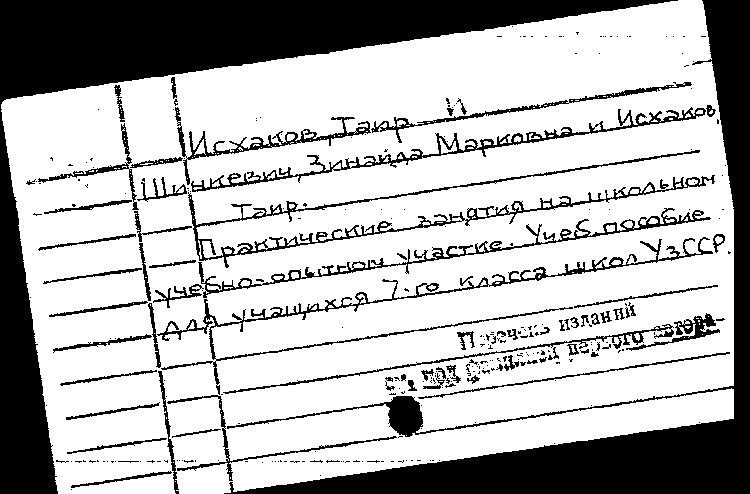 И
Исхаков, Таир
Шинкевич, Зинаида Марковна и Исхаков,
Таир.
Практические занятия на школьном
учебно-опытном участке. Учеб. пособие
для учащихся 7-го класса школ УзССР.
Перечень изданий
см. под фамилией первого автора